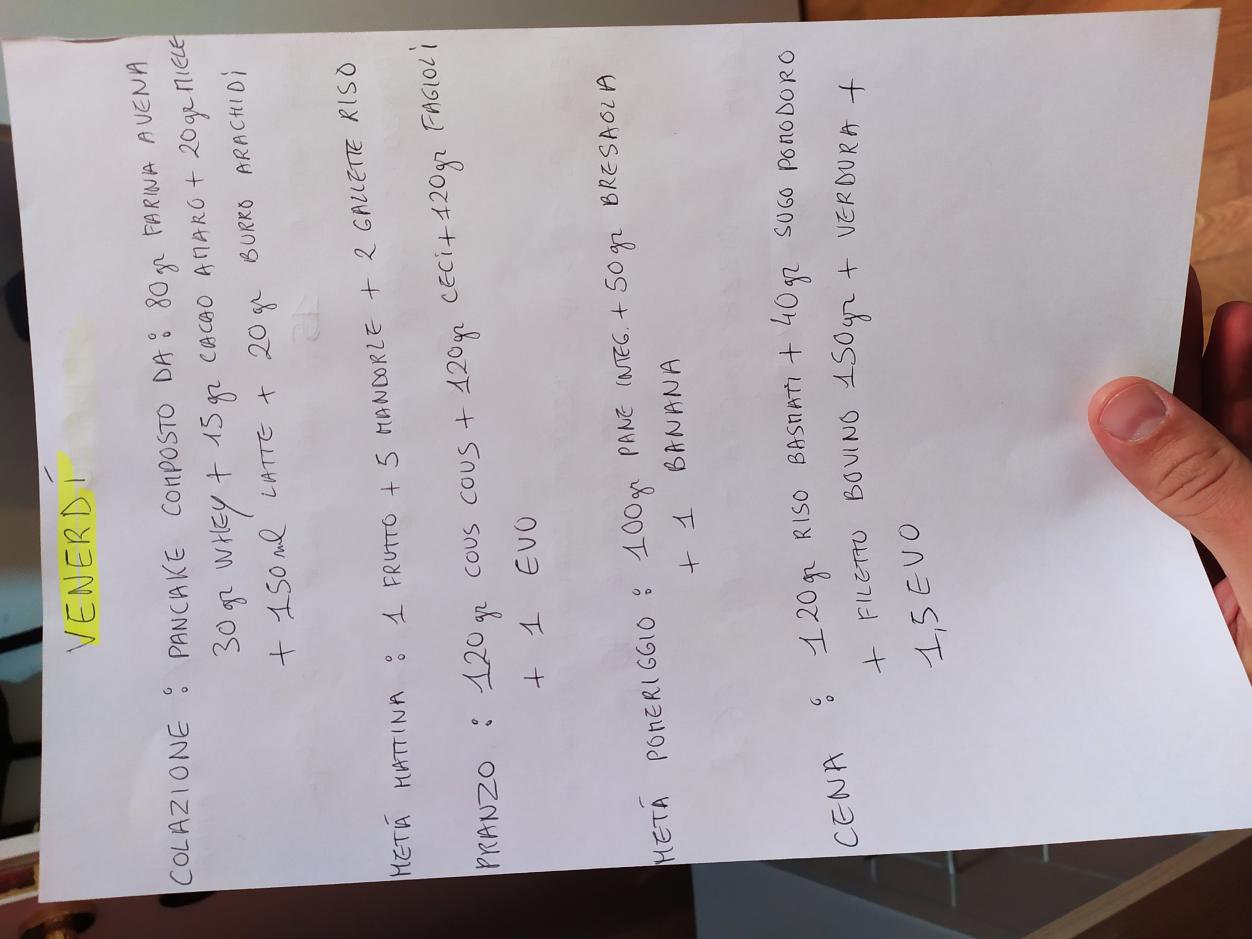 VENERDÍ
COLAZIONE : PANCAKE COMPOSTO DA: 80 gr FARINA AVENA
30 gr WHEY + 15 gr CACAO AMARO + 20gr MIELE
+ 150 ml LATTE + 20 gr BURRO ARACHIDI
METÁ MATTINA : 1 FRUTTO + 5 MANDORLE + 2 GALLETTE RISO
PRANZO : 120 gr COUS COUS + 120gr CECI + 120gr FAGIOLI
+ 1 EVO
METÁ POMERIGGIO : 100gr PANE INTEG. + 50 gr BRESAOLA
+ 1 BANANA
CENA : 120 gr RISO BASMATI + 40gr SUGO POMODORO
+ FILETTO BOVINO 150gr + VERDURA +
1,5 EVO